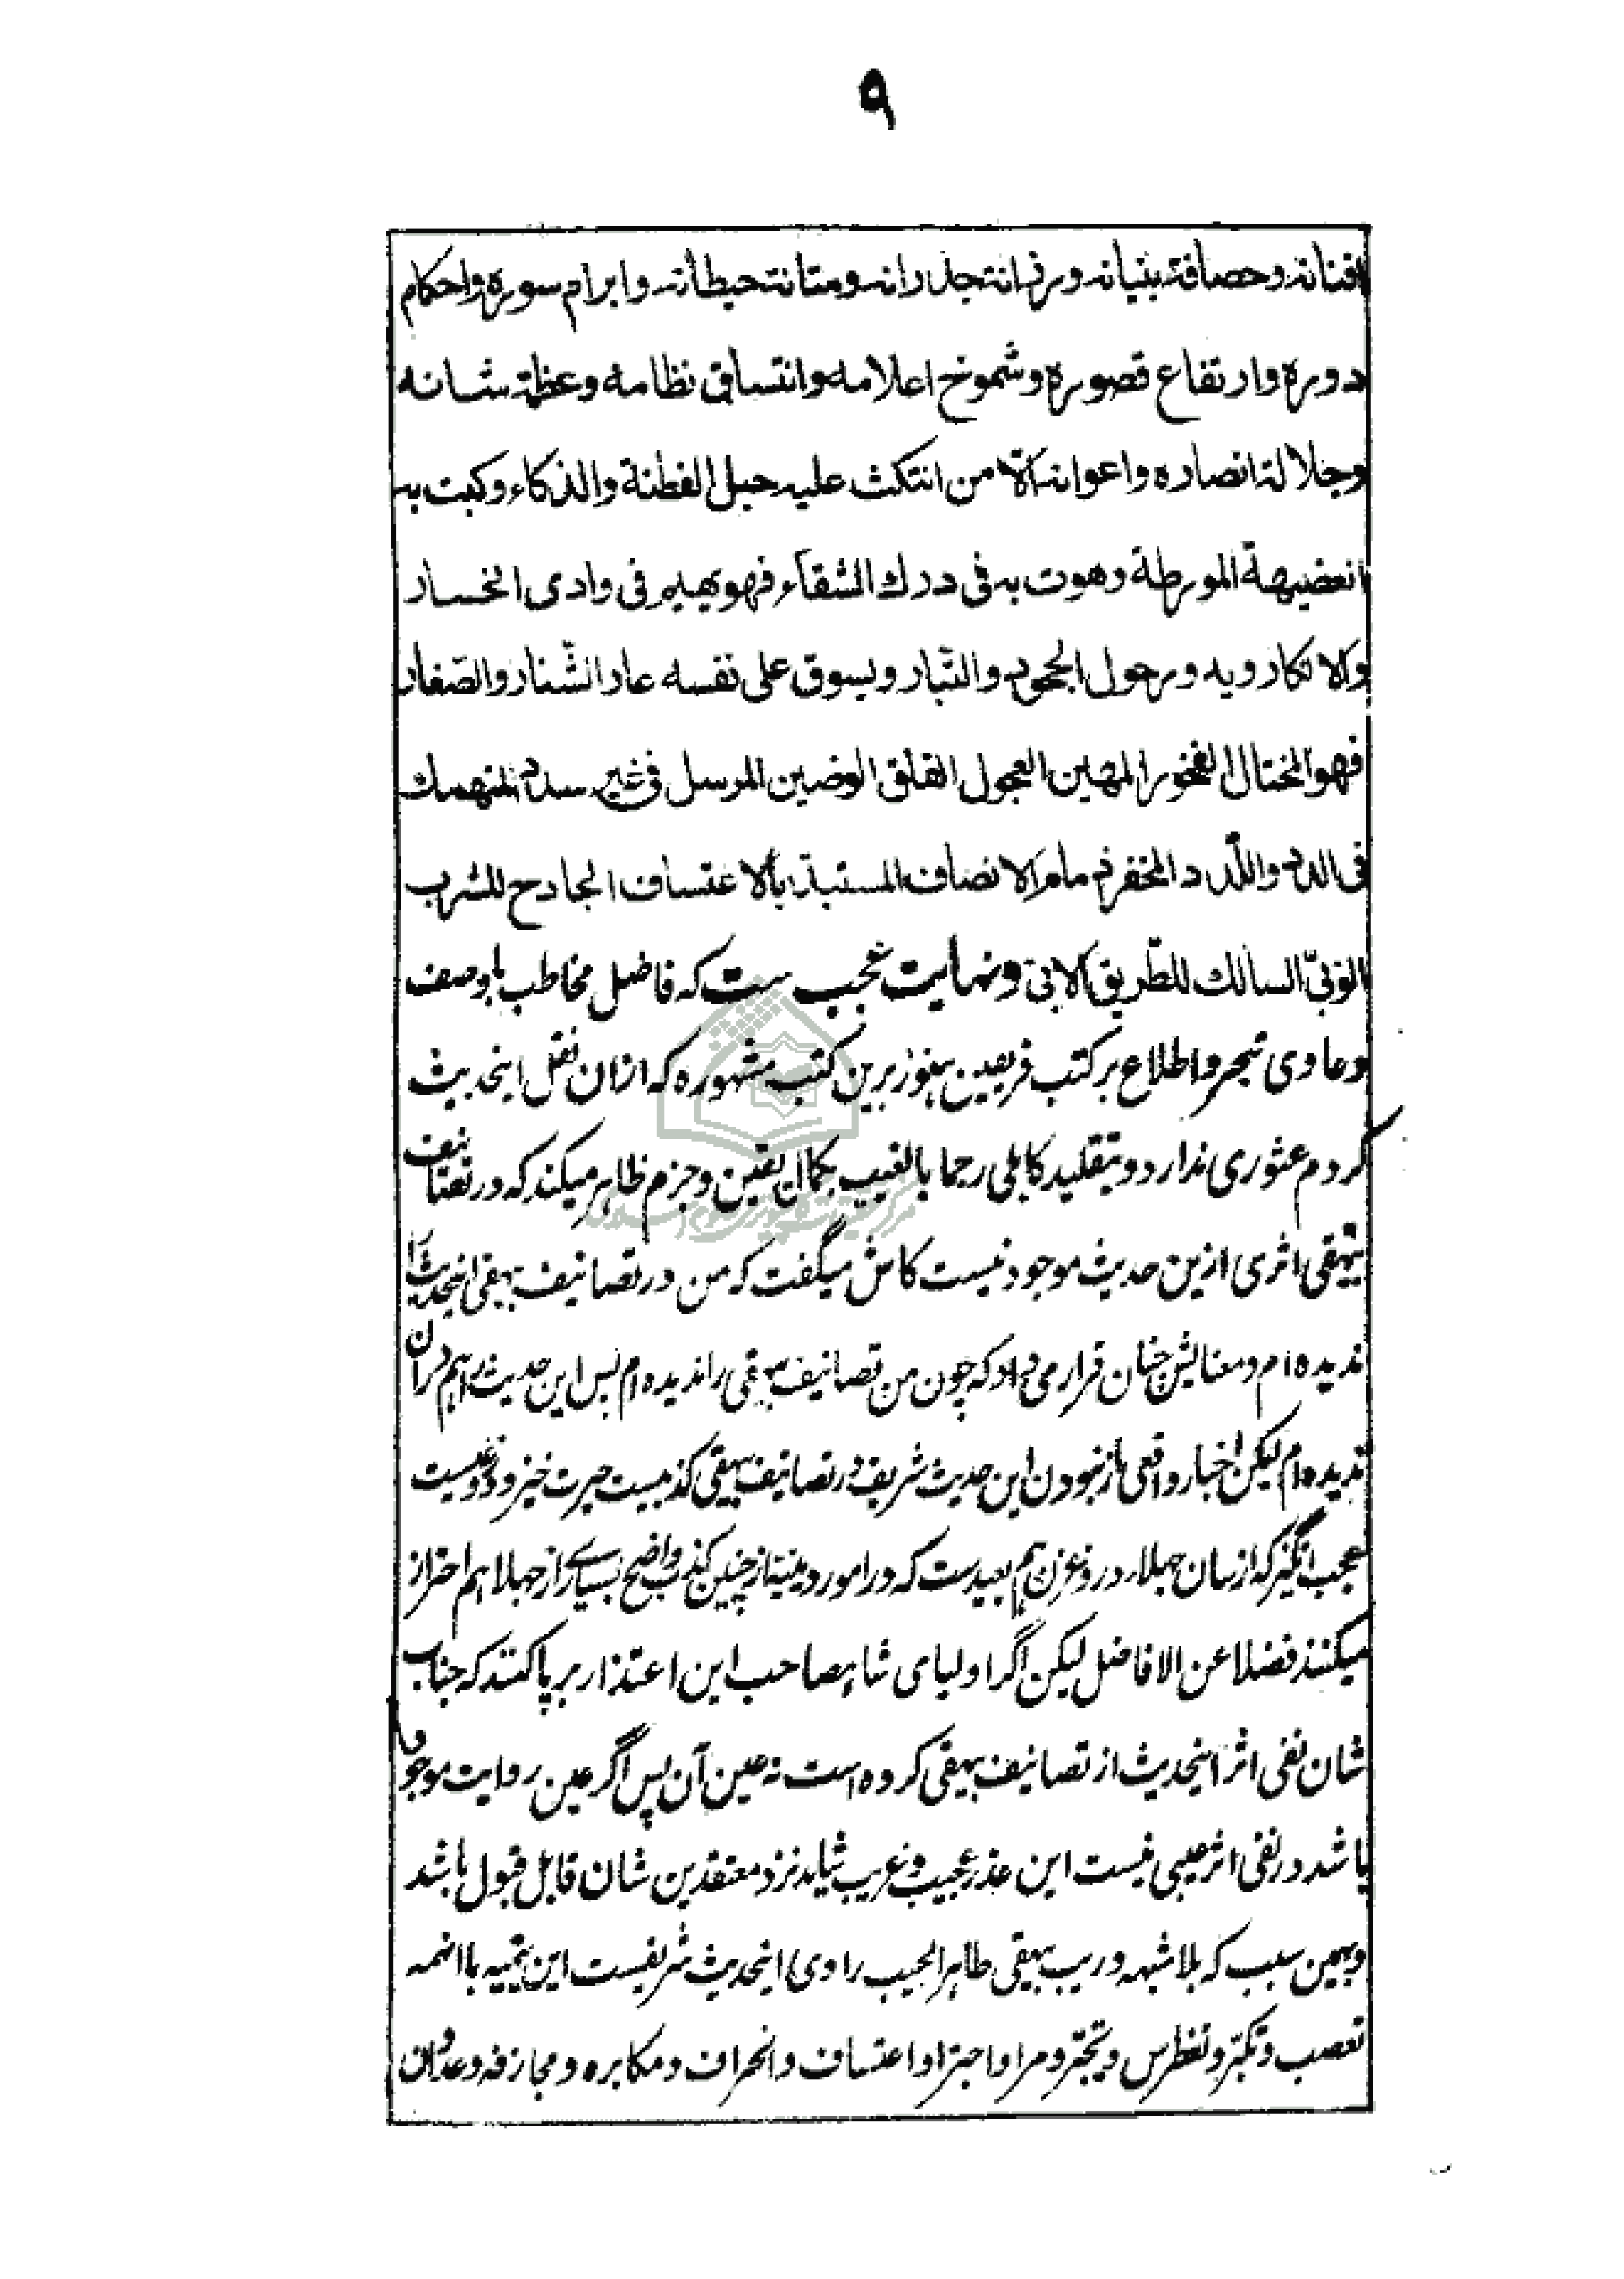 ۹
افنانه و حصافة بنیانه و رزانة جدرانه و متانة حیطانه و ابرام سوره و احکام
دوره و ارتفاع قصوره و شموخ اعلامه و انتساق نظامه و عظمة شانه
و جلالة انصاره و اعوانه الا من انتکث علیه حبل الفطنة والذکاء و کبت به
العضیهة المورطة و هوت به فی درك الشقاء فهو یهیم فی وادی الخسار
والانکار و یه وحول الجحود والتبار و یسوق علی نفسه عار الشّنار والصّغار
فهو المختال الفخور المهین العجول القلق الوضین المرسل فی غیر سدد المنهمك
فی الدد واللّدد المخفر ذمام الانصاف المستبدّ بالاعتساف الجادح للشرب
الوبیّ السالك للطّریق الابیّ و نهایت عجب ست که فاضل مخاطب باوصف
دعاوی تبحر و اطلاع بر کتب فریقین هنوز برین کتب مشهوره که ازان نقل اینحدیث
کردم عثوری ندارد و بتقلید کابلی رجما بالغیب بکمال یقین و جزم ظاهر میکند که در تصانیف
بیهقی اثری ازین حدیث موجود نیست کاش میگفت که من در تصانیف بیهقی اینحدیث را
ندیده ام و معنایش چنان قرار می داد که چون من تصانیف بیهقی را ندیده ام پس این حدیث را هم دران
ندیده ام لیکن اخبار واقعی از نبودن این حدیث شریف در تصانیف بیهقی کذبیست حیرت خیز و دروغیست
عجب انگیز که از لسان جهلاء دروغزن هم بعید ست که در امور دینیّه از چنین کذب واضح بسیارے از جهلا هم احتراز
میکنند فضلا عن الافاضل لیکن اگر اولیای شاه صاحب این اعتذار بر پا کنند که جناب
شان نفی اثر اینحدیث از تصانیف بیهقی کرده است نه عین آن پس اگر عین روایت موجود
باشد در نفی اثر عیبی نیست این عذر عجیب و غریب شاید نزد معتقدین شان قابل قبول باشد
و بهمین سبب که بلا شبهه و ریب بیهقی طاهر الجیب راوی اینحدیث شریفست ابن تیمیه با انهمه
تعصب و تکبّر و تغطرس و تبختر و مرا و اجترا و اعتساف و انحراف و مکابره و مجازفه و عدوان